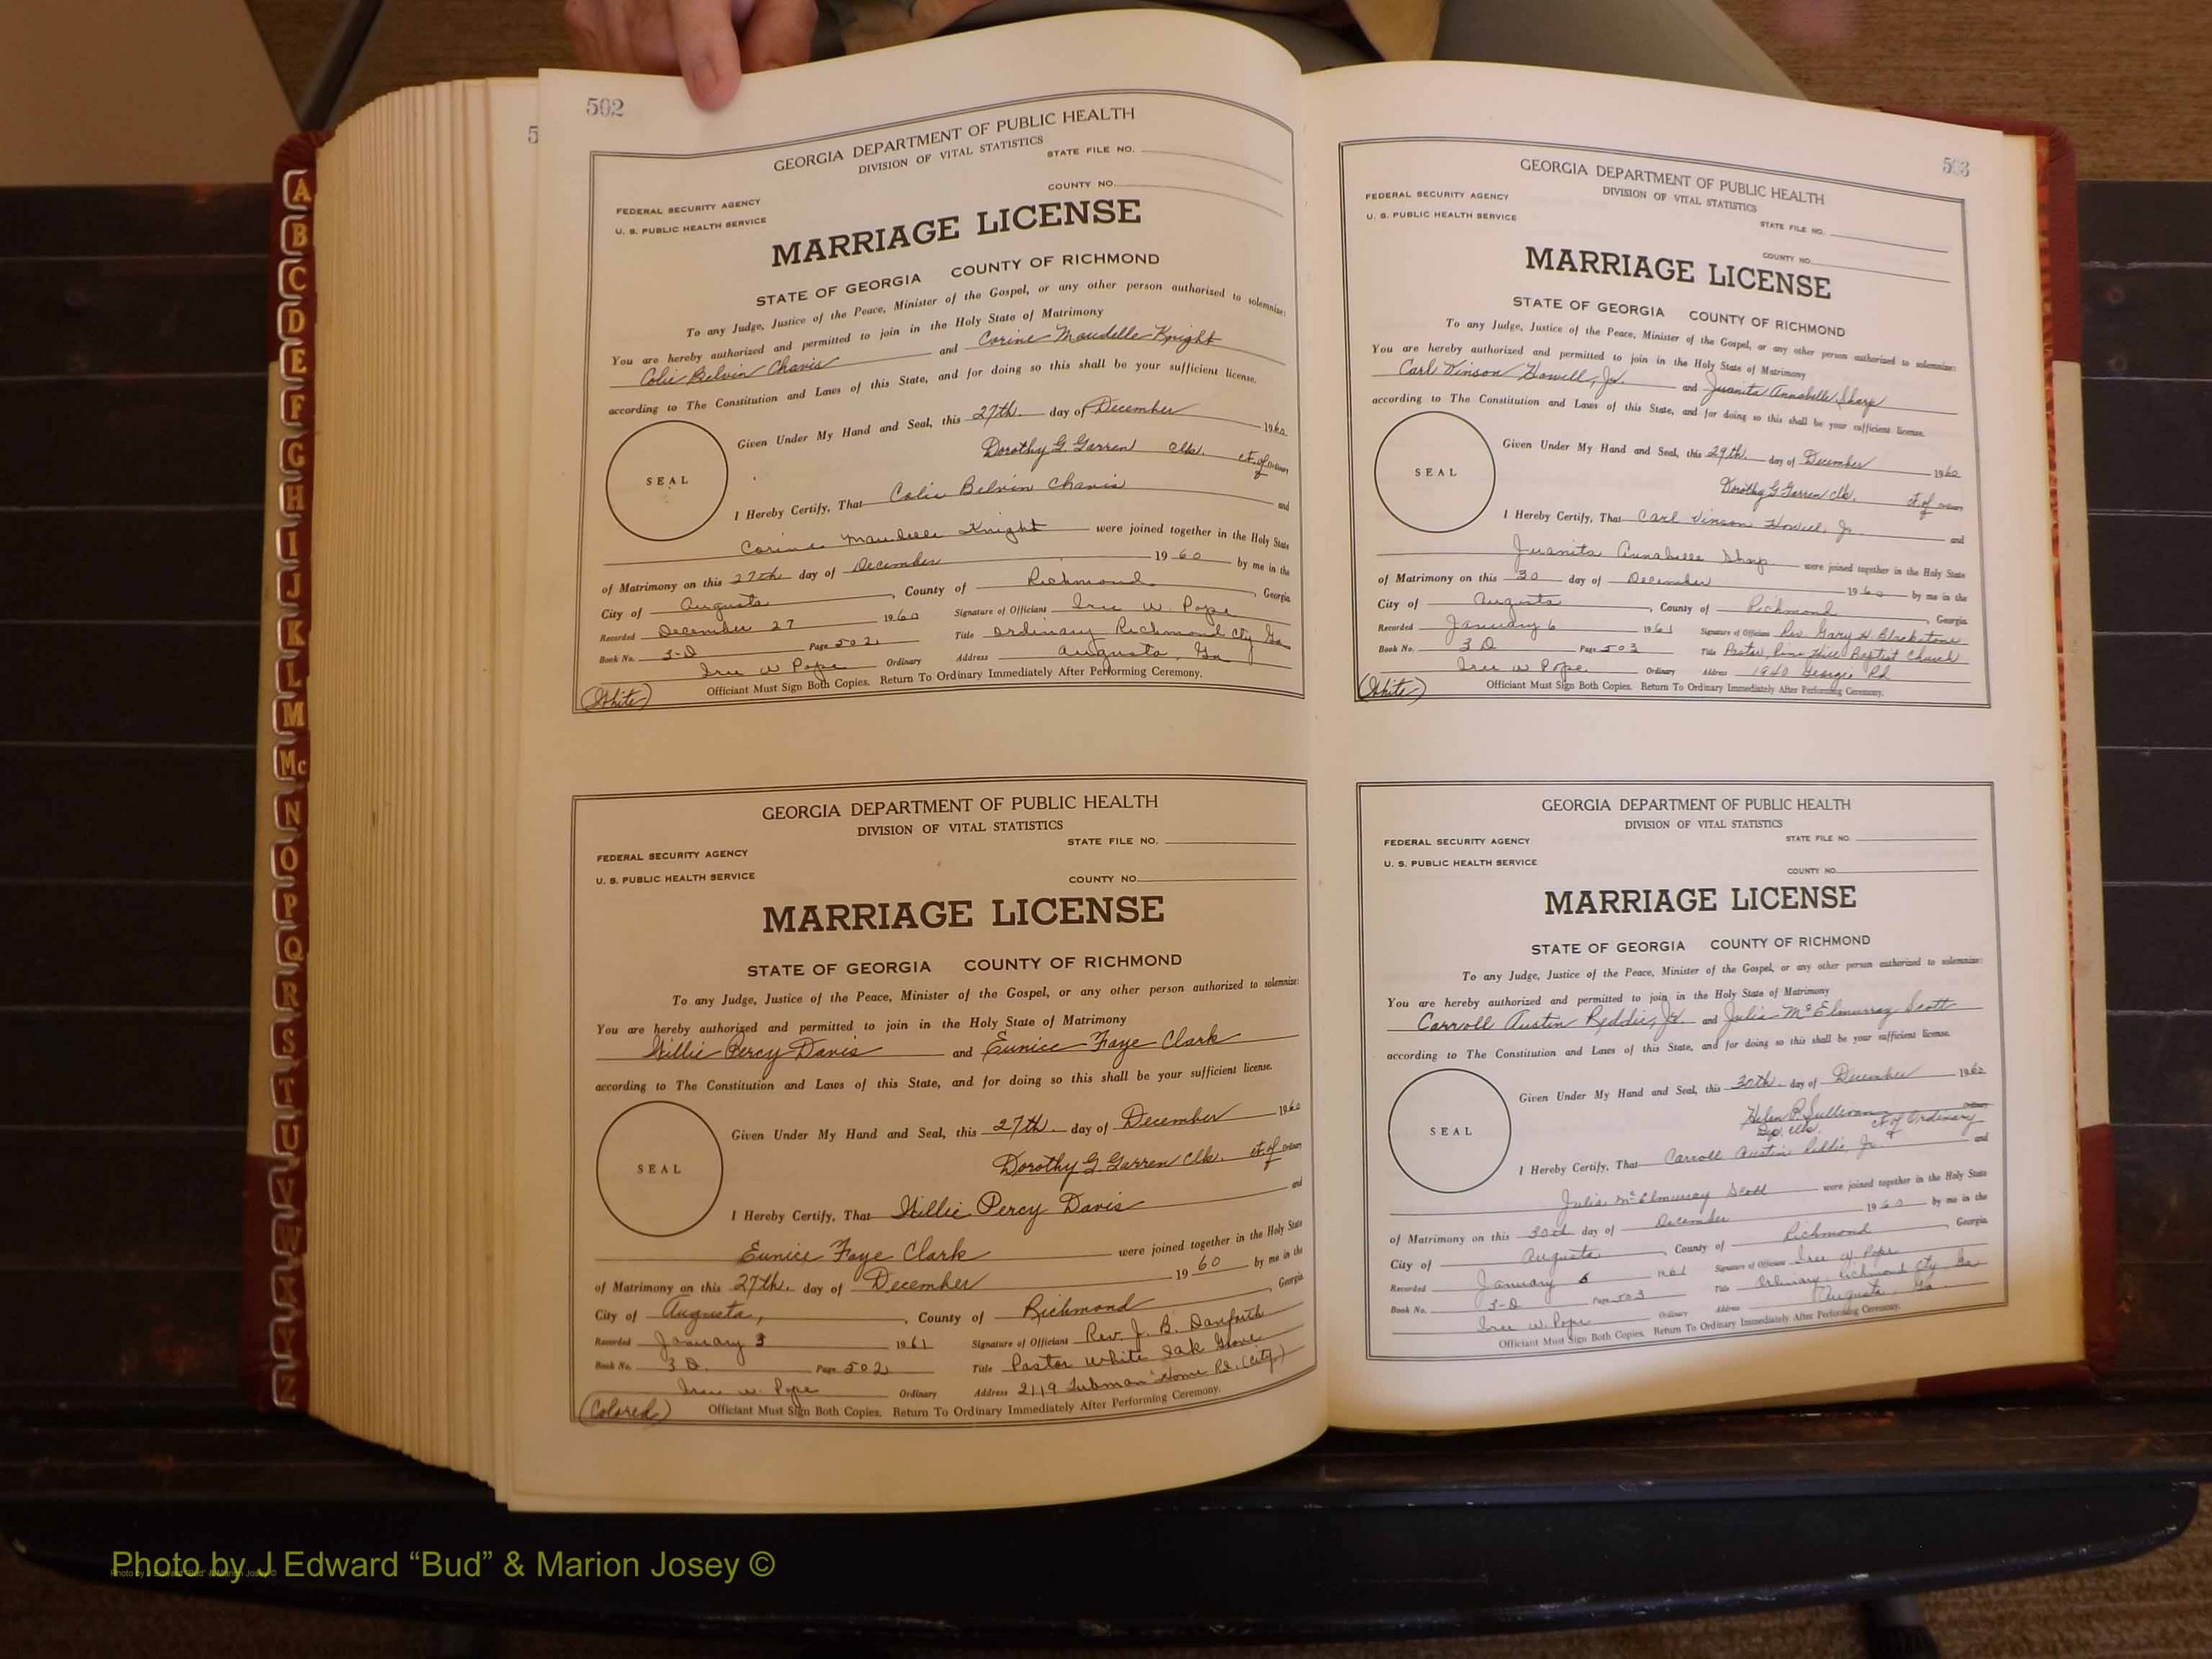 A
B
C
D
E
F
G
H
I
J
K
L
M
Mc
N
O
P
Q
R
S
T
U
V
W
X
Y
Z
5
502
GEORGIA DEPARTMENT OF PUBLIC HEALTH
DIVISION OF VITAL STATISTICS
STATE FILE NO.
COUNTY NO.
FEDERAL SECURITY AGENCY
U. S. PUBLIC HEALTH SERVICE
MARRIAGE LICENSE
STATE OF GEORGIA COUNTY OF RICHMOND
To any Judge, Justice of the Peace, Minister of the Gospel, or any other person authorized to solemnize:
You are hereby authorized and permitted to join in the Holy State of Matrimony
Colie Belvin Chavis and Corine Maudelle Knight
according to The Constitution and Laws of this State, and for doing so this shall be your sufficient license.
Given Under My Hand and Seal, this 27th. day of December 1960
Dorothy G. Garren Clk. Ct. of Ordinary
SEAL
I Hereby Certify, That Colie Belvin Chavis and
Corine Maudelle Knight were joined together in the Holy State
of Matrimony on this 27th day of December 1960 by me in the
City of Augusta, County of Richmond, Georgia
Recorded December 27 1960 Signature of Officiant W. Pope
Book No. 3-D Page 502 Title Ordinary Richmond Cty Ga
W Pope Ordinary Address Augusta, Ga
Officiant Must Sign Both Copies. Return To Ordinary Immediately After Performing Ceremony.
(White)
GEORGIA DEPARTMENT OF PUBLIC HEALTH
DIVISION OF VITAL STATISTICS
STATE FILE NO.
FEDERAL SECURITY AGENCY
U. S. PUBLIC HEALTH SERVICE
COUNTY NO.
MARRIAGE LICENSE
STATE OF GEORGIA COUNTY OF RICHMOND
To any Judge, Justice of the Peace, Minister of the Gospel, or any other person authorized to solemnize:
You are hereby authorized and permitted to join in the Holy State of Matrimony
Willie Percy Davis and Eunice Faye Clark
according to The Constitution and Laws of this State, and for doing so this shall be your sufficient license.
Given Under My Hand and Seal, this 27th. day of December 1960
Dorothy G Garren Clk. Ct. of Ordinary
SEAL
I Hereby Certify, That Willie Percy Davis and
Eunice Faye Clark were joined together in the Holy State
of Matrimony on this 27th. day of December 1960 by me in the
City of Augusta, County of Richmond, Georgia
Recorded January 3 1961 Signature of Officiant Rev. J. B. Danforth
Book No. 3 D. Page 502 Title Pastor White Oak Grove
W. Pope Ordinary Address 2119 Tubman Home Rd. (City)
Officiant Must Sign Both Copies. Return To Ordinary Immediately After Performing Ceremony.
(Colored)
503
GEORGIA DEPARTMENT OF PUBLIC HEALTH
DIVISION OF VITAL STATISTICS
FEDERAL SECURITY AGENCY
U. S. PUBLIC HEALTH SERVICE
STATE FILE NO.
COUNTY NO.
MARRIAGE LICENSE
STATE OF GEORGIA COUNTY OF RICHMOND
To any Judge, Justice of the Peace, Minister of the Gospel, or any other person authorized to solemnize:
You are hereby authorized and permitted to join in the Holy State of Matrimony
Carl Vinson Howell, Jr. and Juanita Annabelle Sharp
according to The Constitution and Laws of this State, and for doing so this shall be your sufficient license.
Given Under My Hand and Seal, this 29th. day of December 1960
Dorothy G Garren Clk. Ct. of Ordinary
SEAL
I Hereby Certify, That Carl Vinson Howell, Jr. and
Juanita Annabelle Sharp were joined together in the Holy State
of Matrimony on this 30 day of December 1960 by me in the
City of Augusta, County of Richmond, Georgia
Recorded January 6 1961 Signature of Officiant Rev. Gary H. Blackstone
Book No. 3 D Page 503 Title Pastor, Pine Hill Baptist Church
W Pope Ordinary Address 1940 Georgia Rd
Officiant Must Sign Both Copies. Return To Ordinary Immediately After Performing Ceremony.
(White)
GEORGIA DEPARTMENT OF PUBLIC HEALTH
DIVISION OF VITAL STATISTICS
STATE FILE NO.
FEDERAL SECURITY AGENCY
U. S. PUBLIC HEALTH SERVICE
COUNTY NO.
MARRIAGE LICENSE
STATE OF GEORGIA COUNTY OF RICHMOND
To any Judge, Justice of the Peace, Minister of the Gospel, or any other person authorized to solemnize:
You are hereby authorized and permitted to join in the Holy State of Matrimony
Carroll Austin Reddic, Jr. and Julia McElmurray Scott
according to The Constitution and Laws of this State, and for doing so this shall be your sufficient license.
Given Under My Hand and Seal, this 30th. day of December 1960
Helen P. Sullivan Ordinary
Dep. Clk. Ct of Ordinary
SEAL
I Hereby Certify, That Carroll Austin Reddic, Jr. and
Julia McElmurray Scott were joined together in the Holy State
of Matrimony on this 30th day of December 1960 by me in the
City of Augusta, County of Richmond, Georgia
Recorded January 6 1961 Signature of Officiant W Pope
Book No. 3-D Page 503 Title Ordinary, Richmond Cty Ga
W. Pope Ordinary Address Augusta, Ga
Officiant Must Sign Both Copies. Return To Ordinary Immediately After Performing Ceremony.
Photo by J Edward “Bud” & Marion Josey ©
Photo by J Edward "Bud" & Marion Josey ©